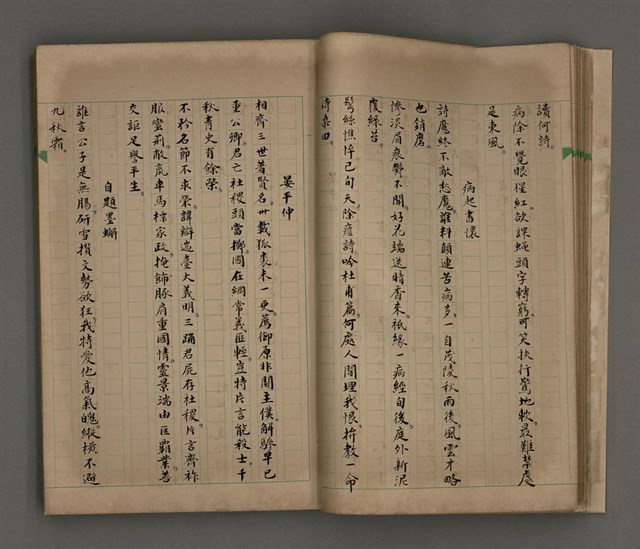 讀何詩。
病除不覺眼猩紅。欲課蠅頭字轉窮。可笑扶行驚地軟。最難禁處
是東風。
病起書懷
詩魔終不敵愁魔。誰料顛連苦病多。一自茂陵秋雨後。風雲才略
也銷磨。
慘淡眉痕鬱不開。好花端送暗香來。祇緣一病經旬後。庭外新泥
覆綠苔。
鬢絲憔悴已旬天。除危詩吟杜甫篇。何處人間埋我恨。拚教一命
詩桑田。
晏平仲
相齊三世著賢名。卅載狐裘未一更。薦御原非關主僕。解驂早已
重公卿。君亡社稷頭當擲。國在綱常義匪輕。豈特片言能殺士。千
秋青史有餘榮。
不矜名節不求榮。諱辯造臺大義明。三踊君屍存社稷。片言齊祚
服蠻荊。敝裘車馬標家政。掩鈽豚肩重國情。靈景濡由匡霸業。善
交詎足譽平生。
自題墨蟹
誰言公子是無腸。研雪攢文勢欲狂。我特愛他高氣魄。縱橫不避
九秋霜。